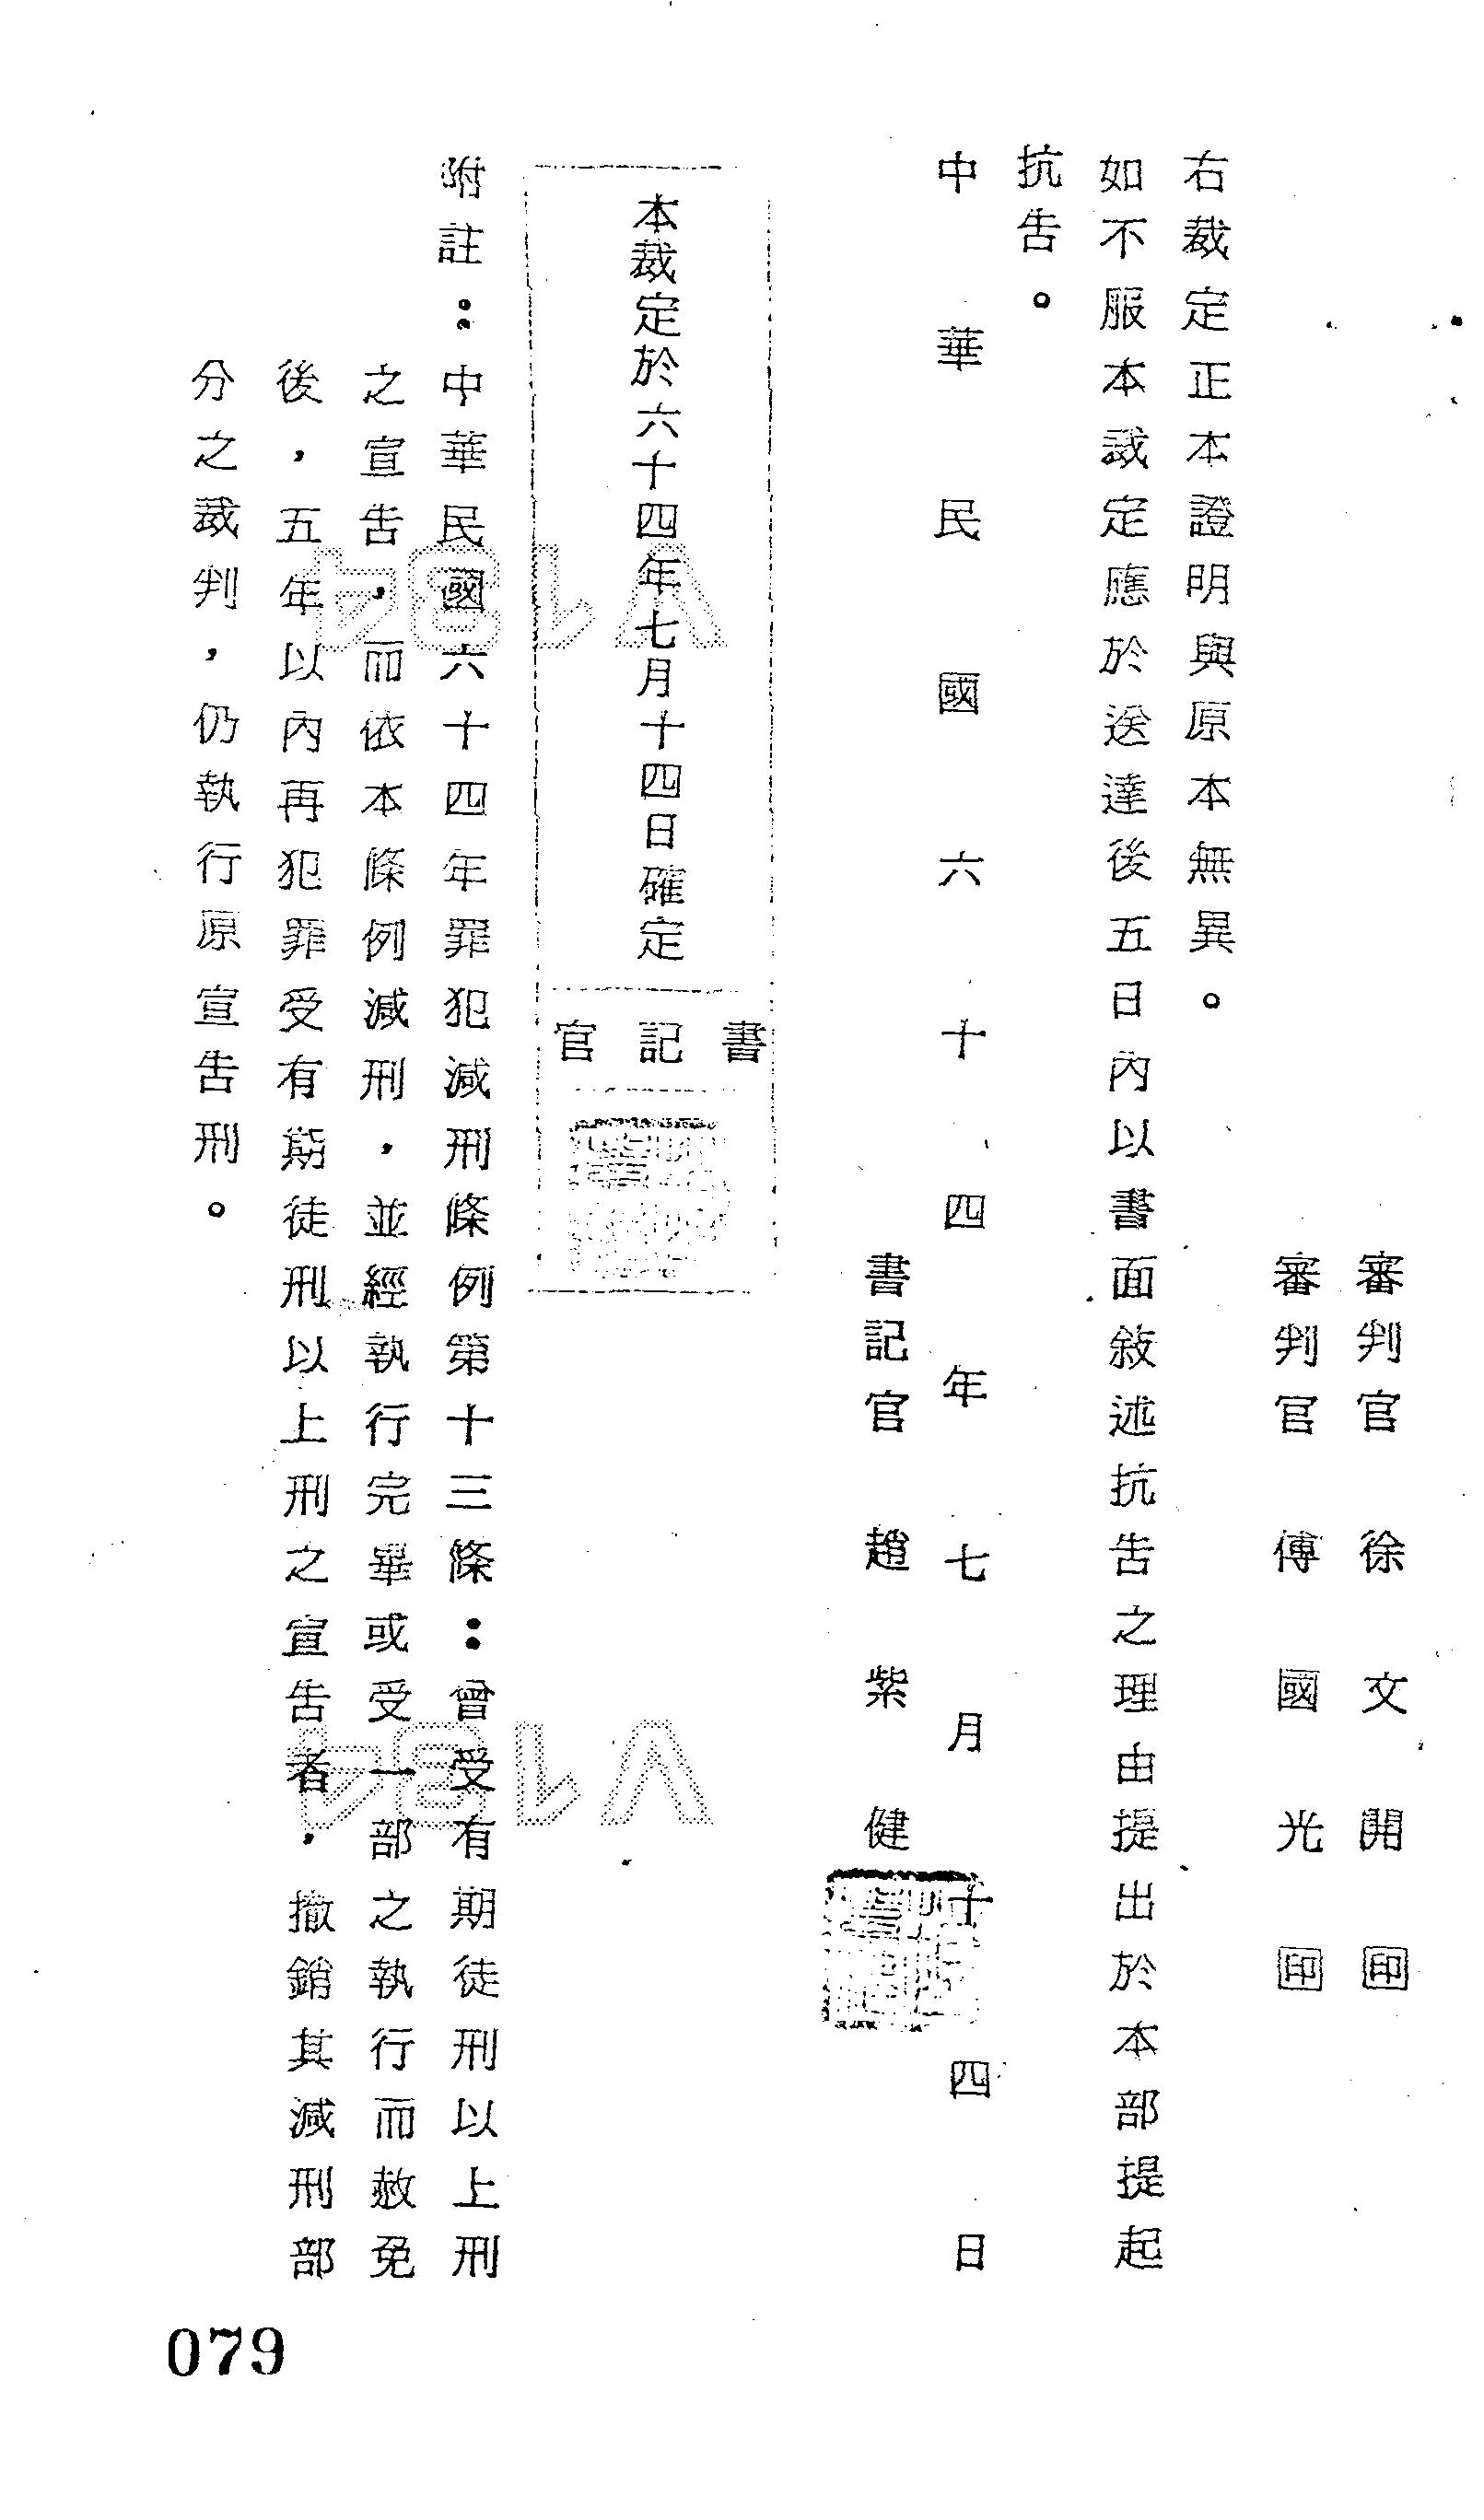 審判官 徐文開 印
審判官 傅國光 印
右裁定正本證明與原本無異。
如不服本裁定應於送達後五日內以書面敍述抗告之理由提出於本部提起
抗告。
中華民國六十四年七月十四日
書記官 趙紫健
本裁定於六十四年七月十四日確定
書記官
附註：中華民國六十四年罪犯減刑條例第十三條：曾受有期徒刑以上刑
之宣告，而依本條例減刑，並經執行完畢或受一部之執行而赦免
後，五年以內再犯罪受有期徒刑以上刑之宣告者，撤銷其減刑部
分之裁判，仍執行原宣告刑。
V134
V134
079